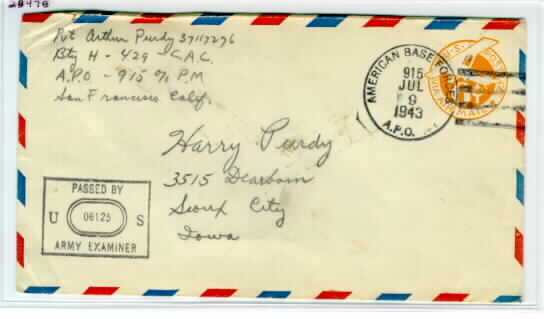 28478
Pvt Arthur Purdy 37117276
Bty H - 429 C.A.C.
A.P.O - 915 % P.M
San Francisco Calif.
AMERICAN BASE FORCES
915
JUL
9
1943
A.P.O.
U.S. POSTAGE
VIA AIR MAIL
Harry Purdy
3515 Dearborn
Sioux City
Iowa
PASSED BY
U 06125 S
ARMY EXAMINER